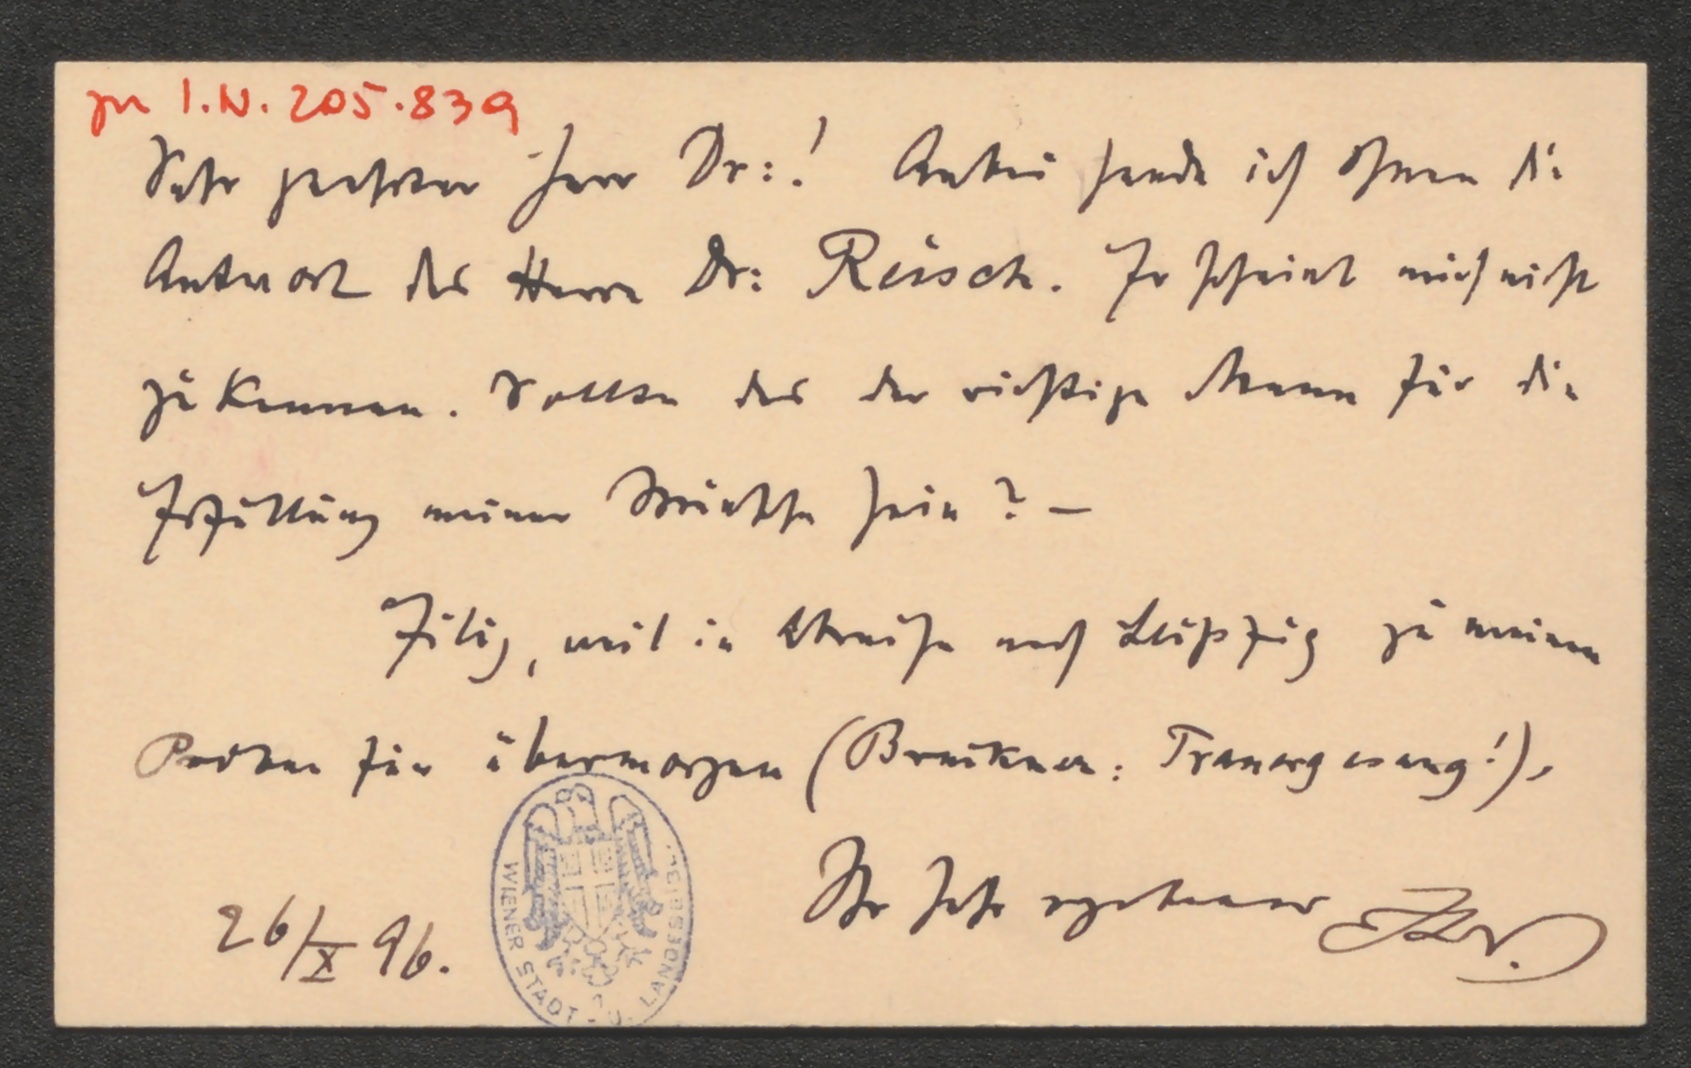 zu I.N. 205.839
Sehr geehrter Herr Dr:! Anbei sende ich Ihnen die
Antwort des Herrn Dr: Reisch. Er scheint mich nicht
zu kennen. Sollte das der richtige Mann für die
Erfüllung meiner Wünsche sein? —
Eilig, weil in Abreise nach Leipzig zu meinen
Proben für übermorgen (Bruckner: Trauergesang!),
Ihr sehr ergebener
26/X 96.
WIENER STADT - U. LANDESBIBL